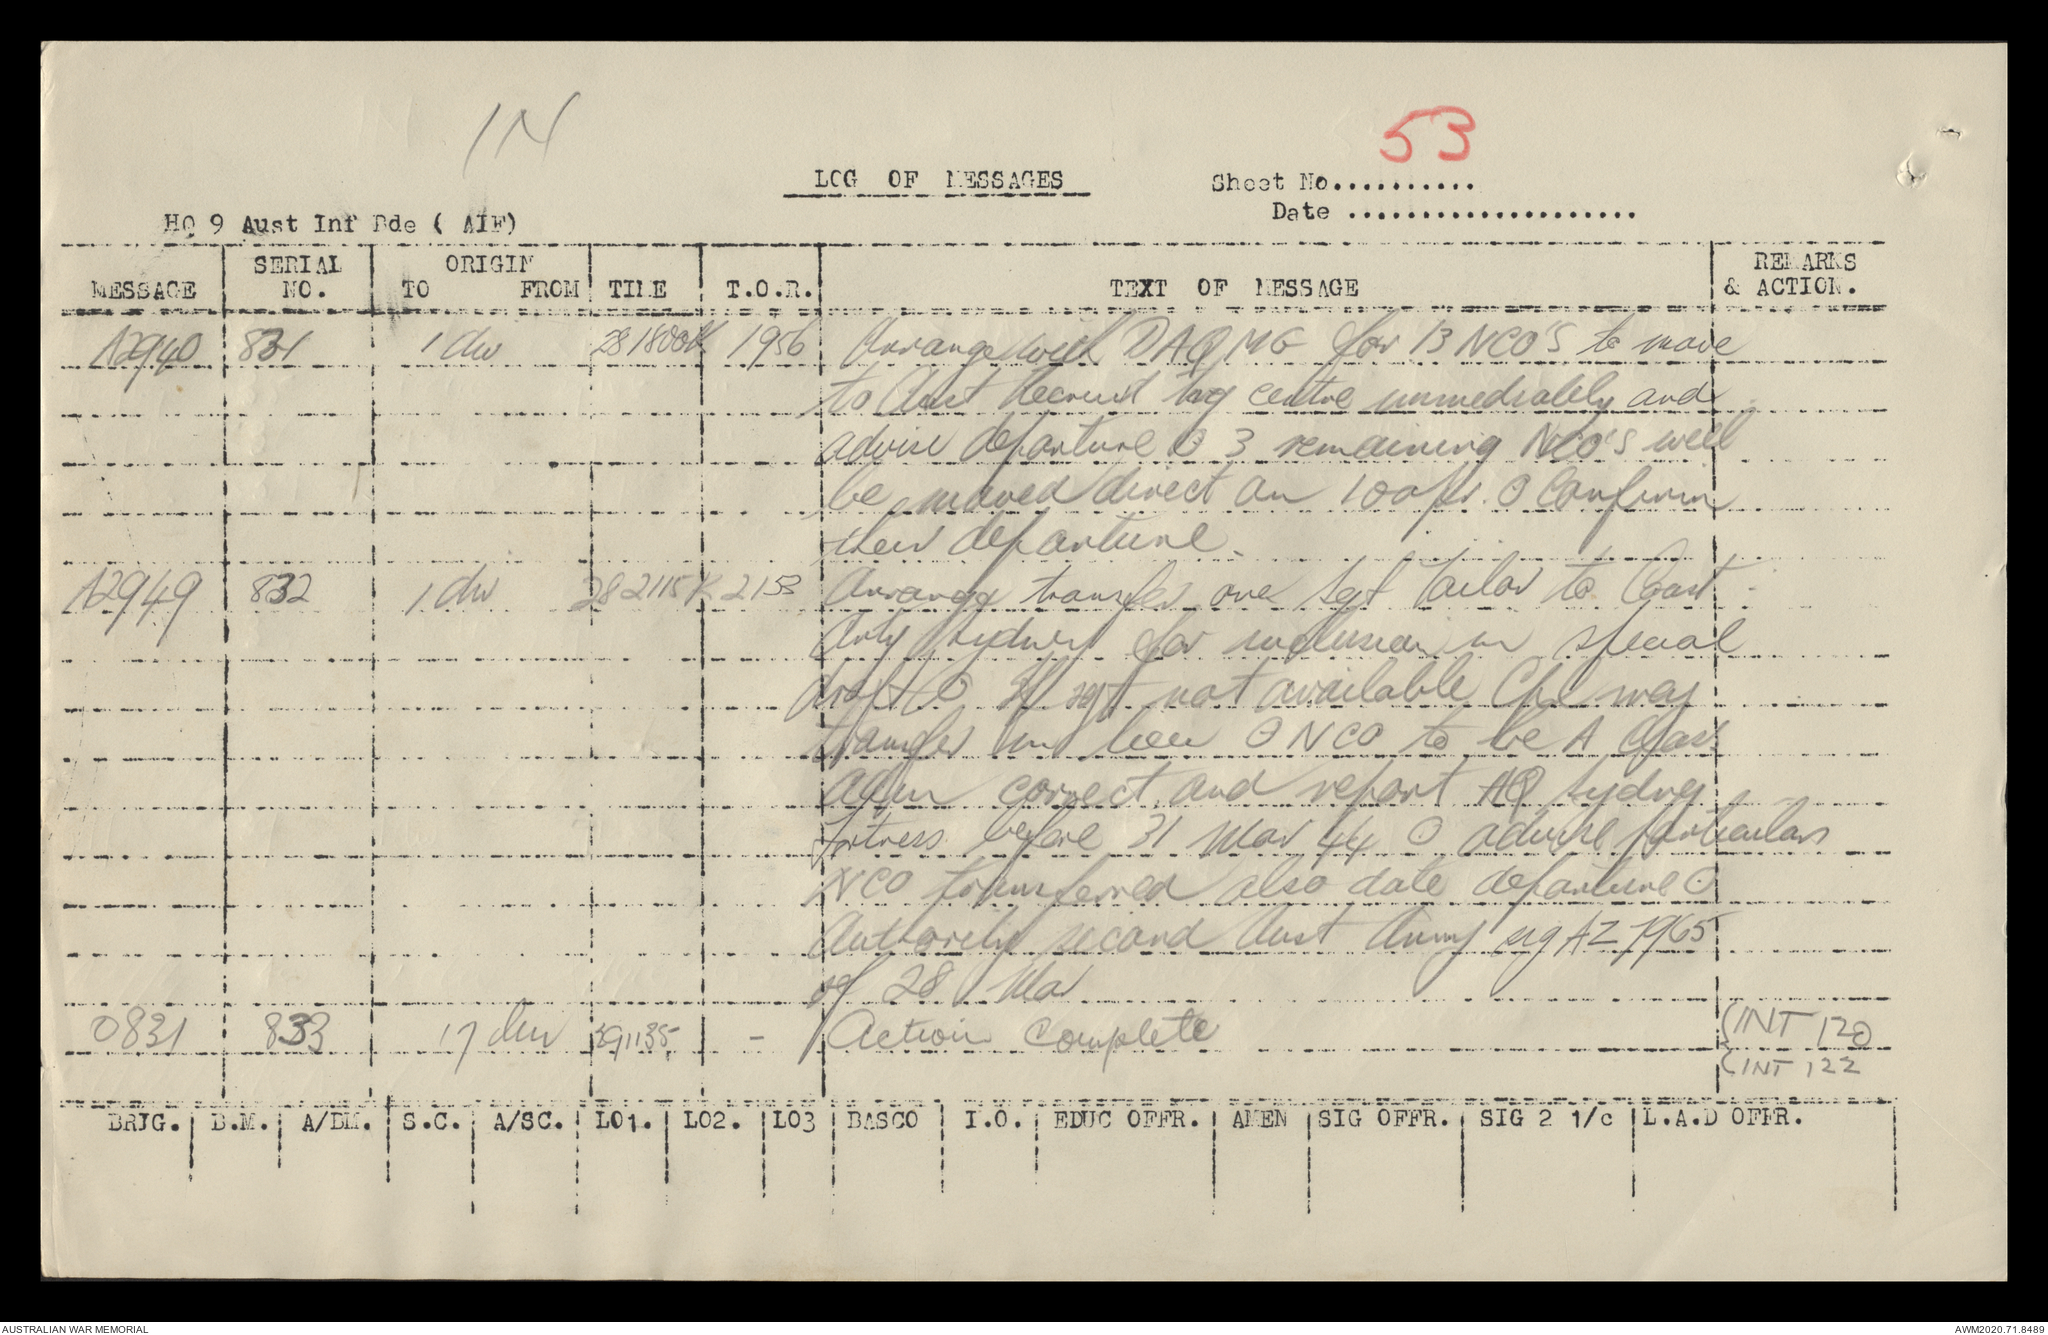 IN
53
LOG OF MESSAGES
Sheet No..........
Date ....................
HQ 9 Aust Inf Bde ( AIF)
MESSAGE SERIAL NO. ORIGIN TO FROM TIME T.O.R. TEXT OF MESSAGE REMARKS & ACTION.
A2940 831 1 div 281800K 1956 Arrange with DAQMG for 13 NCO'S to move
to Aust Recruit trg centre immediately and
advise departure O 3 remaining NCO'S will
be moved direct on O Confirm
their departure.
A2949 832 1 div 282115K 2153 Arrange transfer one Sgt Tailor to Coast
Arty Sydney for inclusion in special
draft O If sgt not available Cpl may
transfer in lieu O NCO to be A class
correct and report HQ Sydney
Fortress before 31 Mar 44 O advise particulars
NCO transferred also date departure O
Authority second Aust Army sig AZ 7965
of 28 Mar
0831 833 17 div 291135 - Action Complete (INT 120
(INT 122
BRIG. B.M. A/BM. S.C. A/SC. LO1. LO2. LO3 BASCO I.O. EDUC OFFR. AMEN SIG OFFR. SIG 2 1/c L.A.D OFFR.
AUSTRALIAN WAR MEMORIAL
AWM2020.71.8489